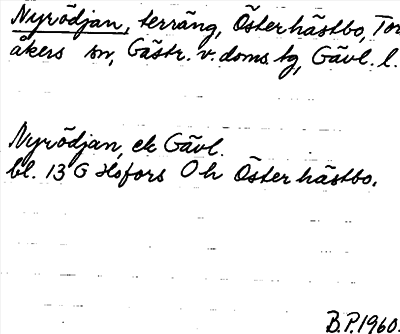 Nyrödjan, terräng, Österhästbo, Tor
åkers sn, Gästr. v. doms. tg, Gävl. l.
Nyrödjan, ek Gävl.
bl. 13 G Hofors O h Österhästbo.
B.P. 1960.